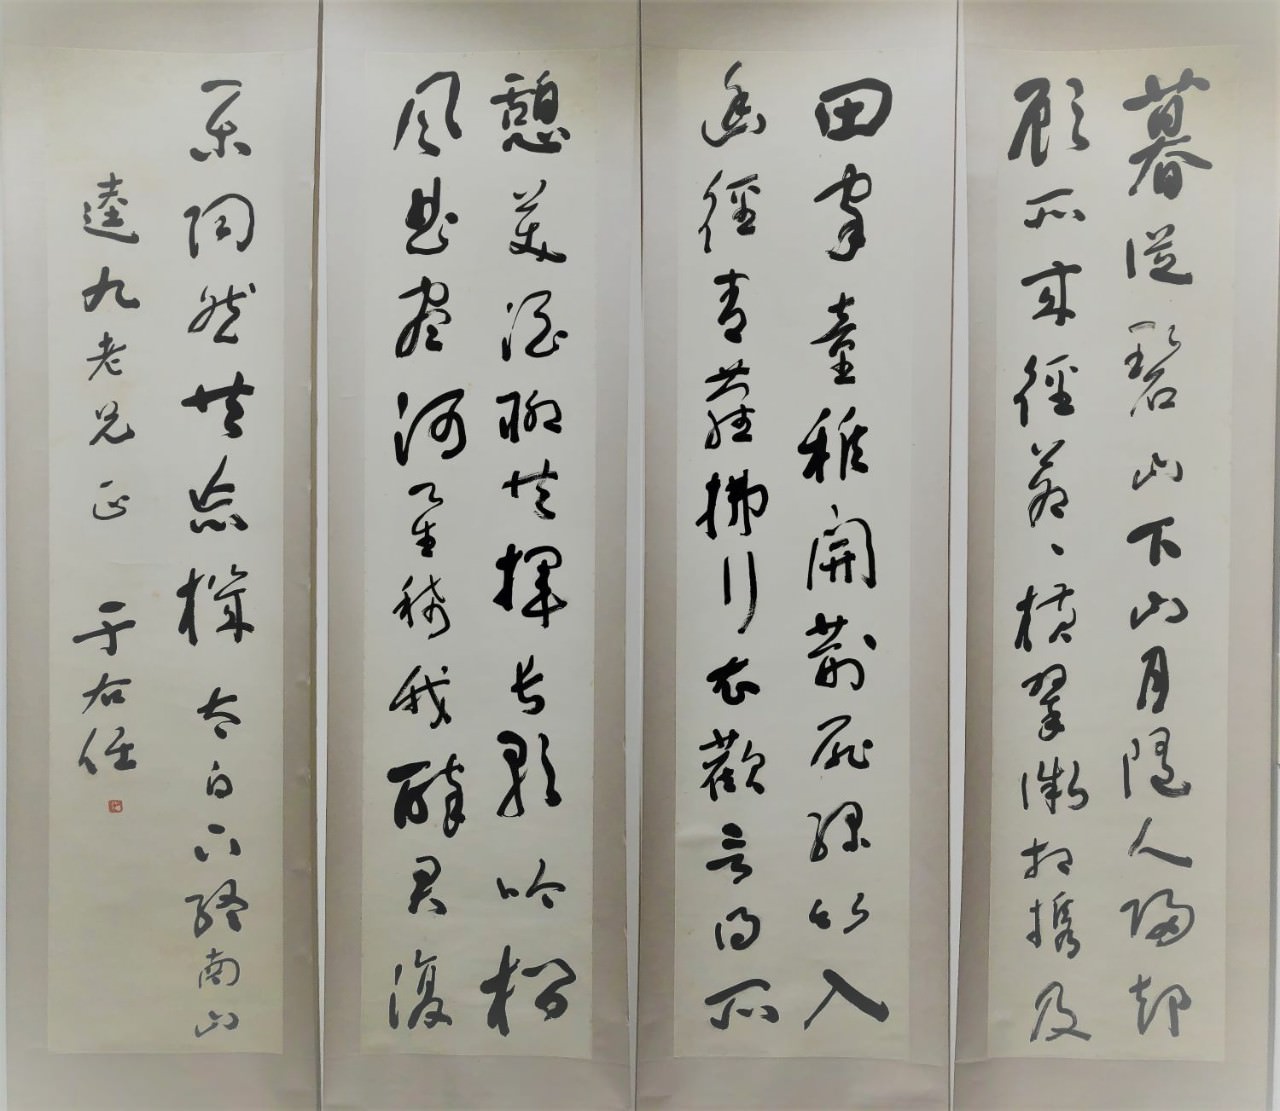 暮從碧山下山月隨人歸却
顧所來徑蒼、橫翠微相攜及
田家童稚開荊扉綠竹入
幽徑青蘿拂行衣歡言得所
憩美酒聊共揮長歌吟松
風曲盡河星稀我醉君復
樂陶然共忘機 太白下終南山
逵九老兄正 于右任